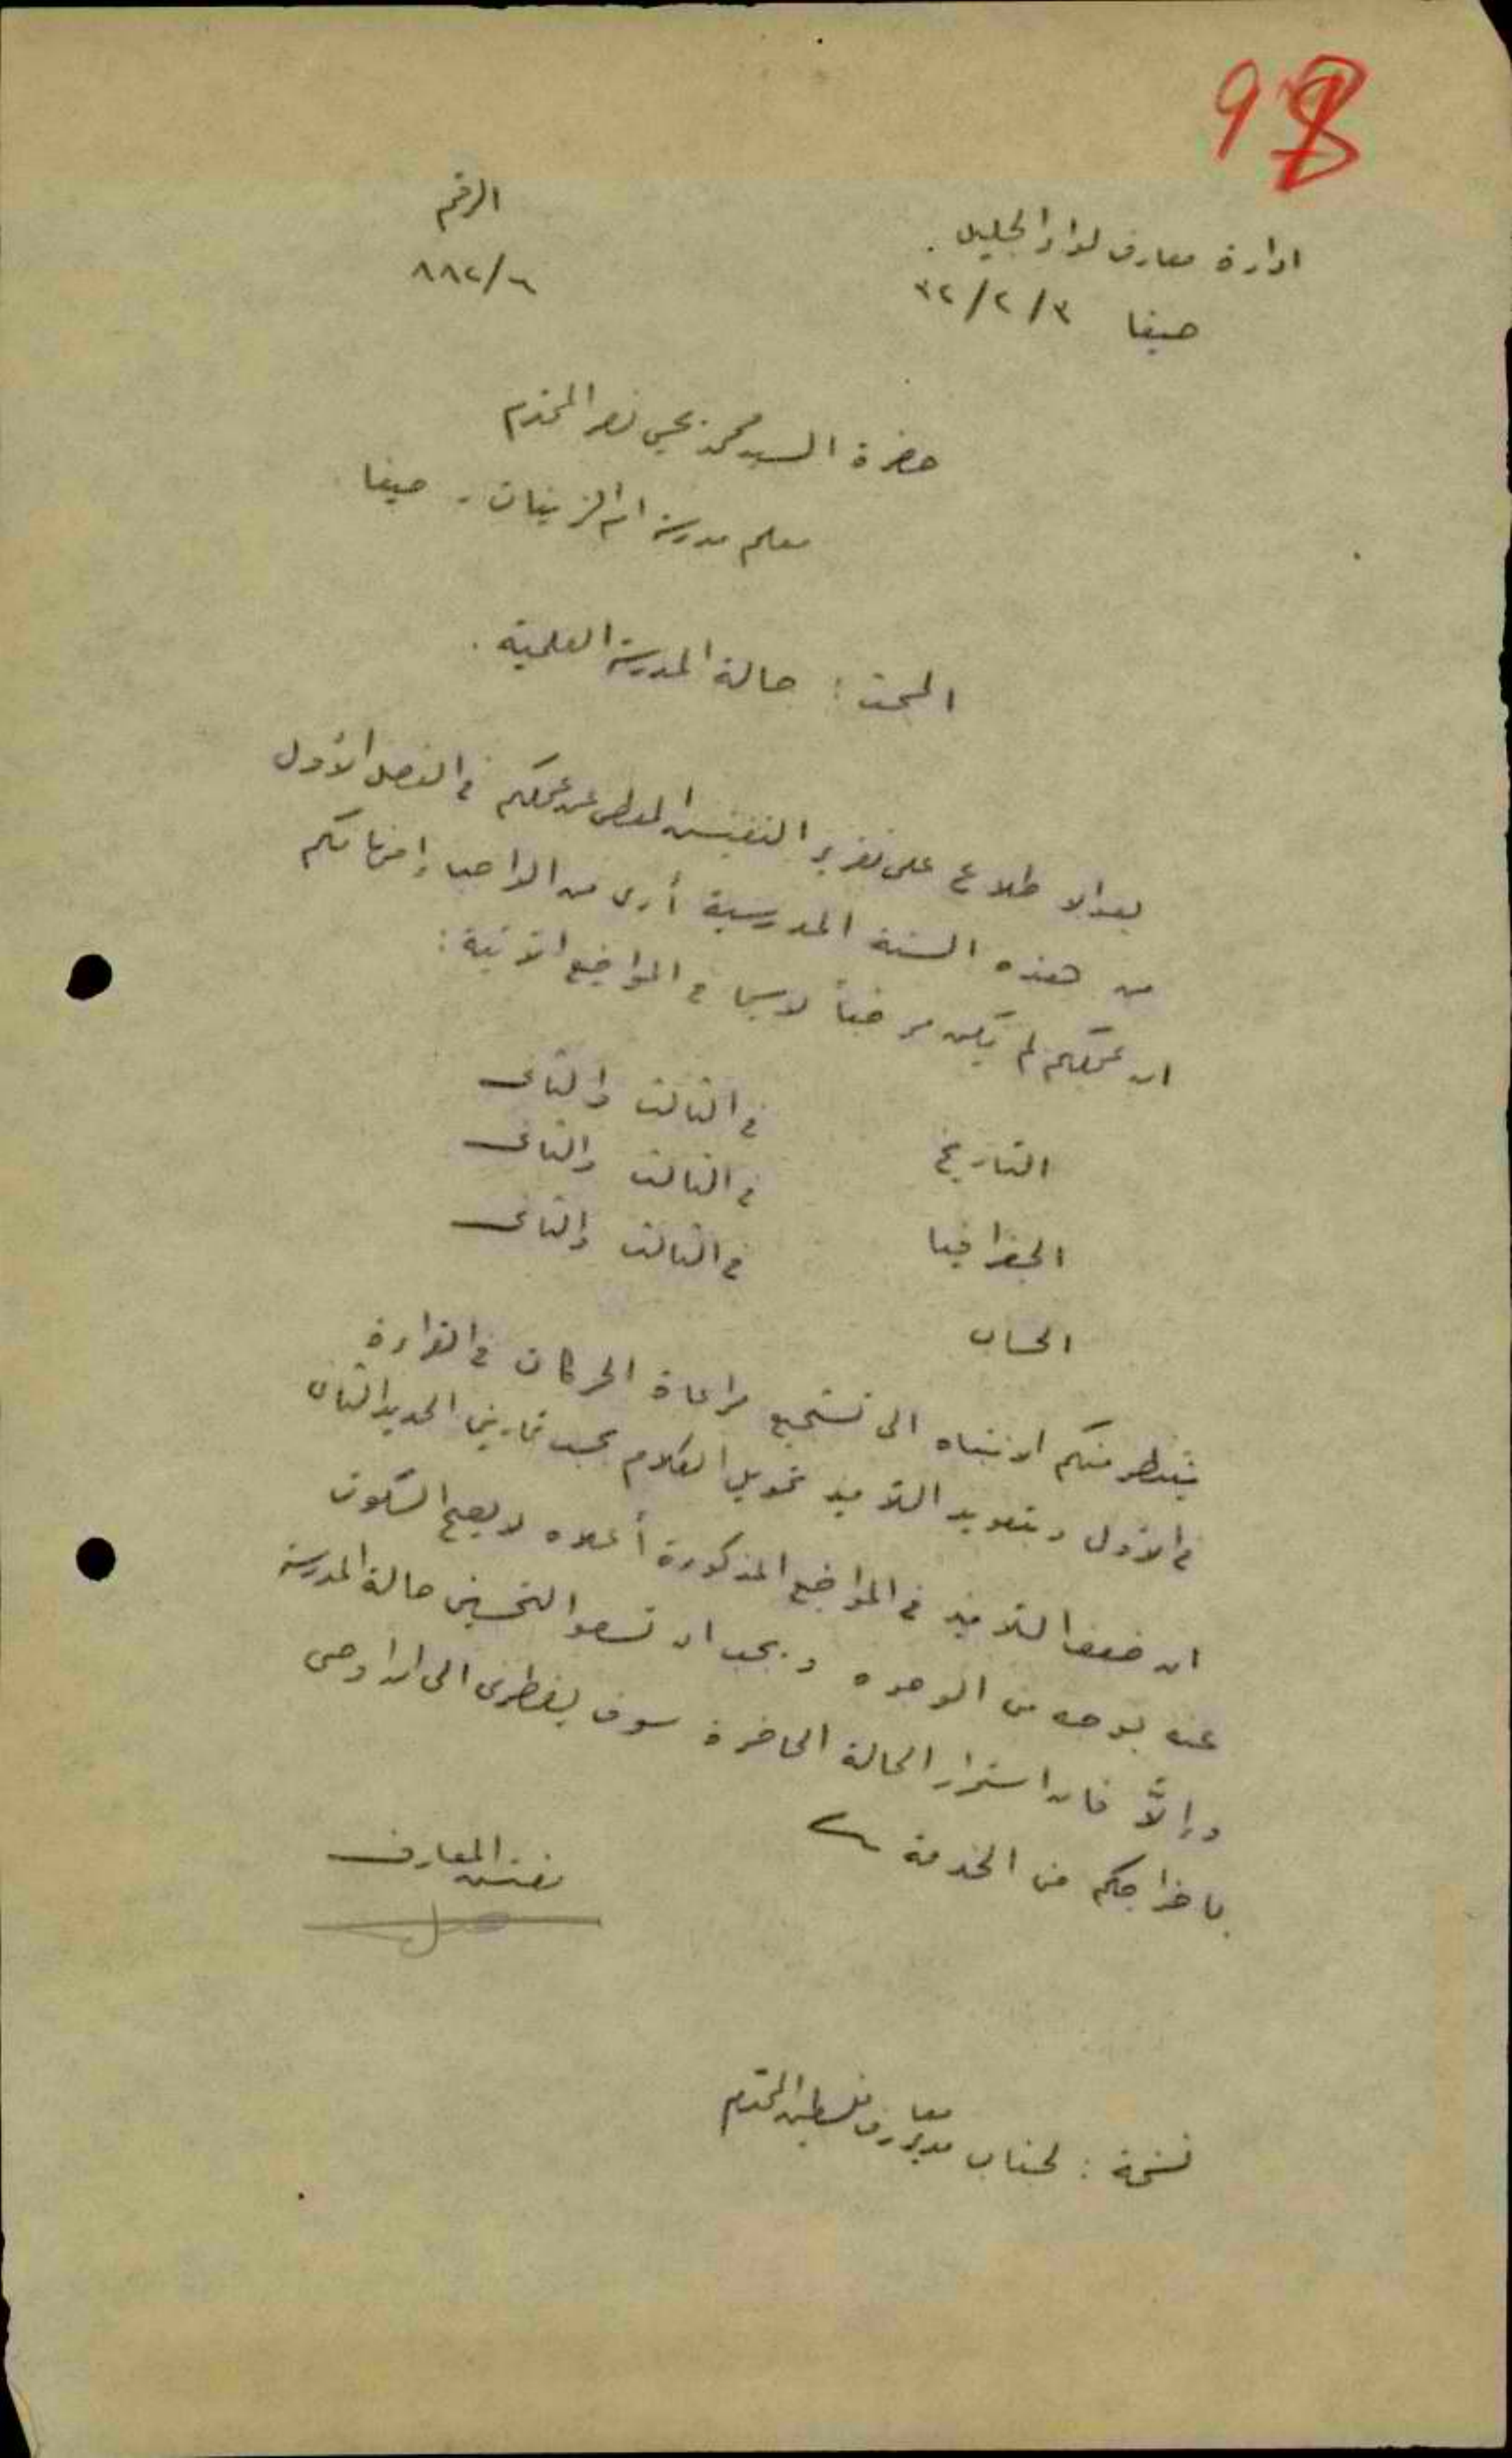 98
الرقم
٨٨٢/٦
ادارة معارف لواء الجليل.
حيفا ٣٢/٢/٣
حضرة السيد محمد يحيى نصر المحترم
معلم مدرسة ام الزينات - حيفا
المبحث: حالة المدرسة العلمية.
بعد الاطلاع على تقرير التفتيش المعطى عن عملكم في الفصل الأول
من هذه السنة المدرسية أرى من الواجب إخباركم
ان عملكم لم يكن مرضياً لا سيما في المواضيع الآتية:
التاريخ في الثالث والثاني
الجغرافيا في الثالث والثاني
الحساب في الثالث والثاني
ينتظر منكم الانتباه الى تشجيع مراعاة الحركات في القراءة
في الأول وبتعويد التلاميذ تحويل الكلام بحسب تمارين الجديد الثاني
ان ضعف التلاميذ في المواضيع المذكورة أعلاه لا يصح السكوت
عنه بوجه من الوجوه ويجب ان تسعوا لتحسين حالة المدرسة
وإلاّ فان استمرار الحالة الحاضرة سوف يضطرني الى ان اوصي
باخراجكم من الخدمة
مفتش المعارف
نسخة: لجناب مدير معارف فلسطين المحترم